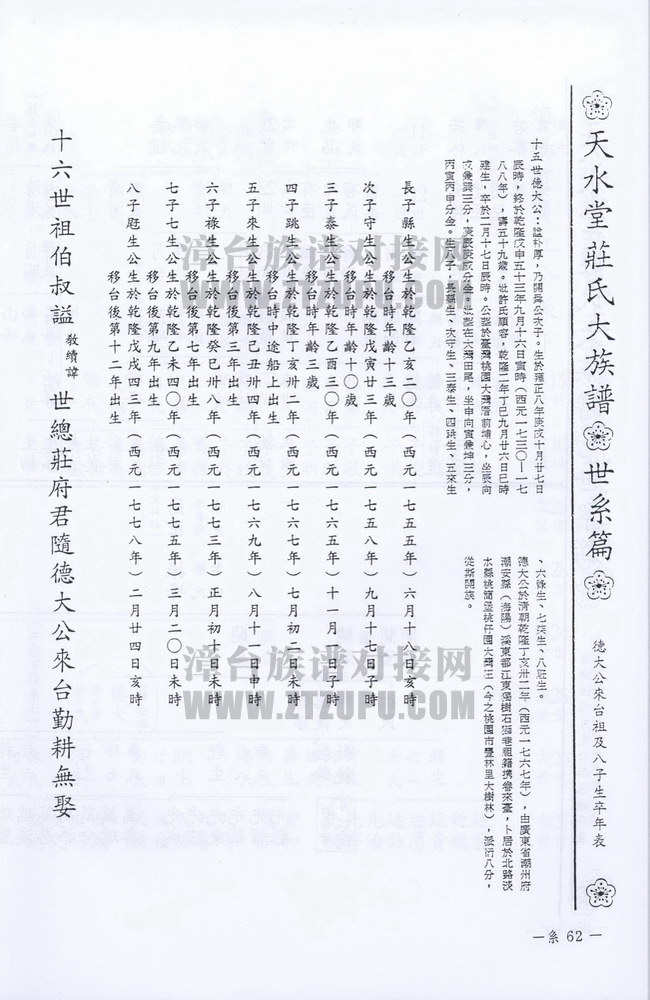 天水堂莊氏大族譜 世系篇
德大公來台祖及八子生卒年表
十五世德大公：諡朴厚，乃開舜公次子。生於雍正八年庚戌十月廿七日
辰時，終於乾隆戊申五十三年九月十六日寅時（西元一七三〇—一七
八八年），壽五十九歲。妣許氏順容，乾隆二年丁巳九月廿六日巳時
建生，卒於二月十七日辰時。公塟於臺灣桃園大湳厝前埔心，坐辰向
戌兼巽三分，庚辰庚戌分金。妣塟在大湳田尾，坐申向寅兼坤三分，
丙寅丙申分金。生八子，長縣生、次守生、三泰生、四跳生、五來生
、六祿生、七柒生、八冠生。
德大公於清朝乾隆丁亥卅二年（西元一七六七年），由廣東省潮州府
潮安縣（海陽）溪東都江東獨樹石獅巷祖籍携眷來臺，卜居於北路淡
水縣桃簡堡桃仔園大湳庄（今之桃園市豐林里大樹林），派衍八分，
從斯開族。
長子縣生公生於乾隆乙亥二〇年（西元一七五五年）六月十八日亥時
移台時年齡十三歲
次子守生公生於乾隆戊寅廿三年（西元一七五八年）九月十七日子時
移台時年齡十〇歲
三子泰生公生於乾隆乙酉三〇年（西元一七六五年）十一月一日子時
移台時年齡三歲
四子跳生公生於乾隆丁亥卅二年（西元一七六七年）七月初二日未時
移台時中途船上出生
五子來生公生於乾隆己丑卅四年（西元一七六九年）八月十一日申時
移台後第三年出生
六子祿生公生於乾隆癸巳卅八年（西元一七七三年）正月初十日未時
移台後第七年出生
七子七生公生於乾隆乙未四〇年（西元一七七五年）三月二〇日未時
移台後第九年出生
八子冠生公生於乾隆戊戌四三年（西元一七七八年）二月廿四日亥時
移台後第十二年出生
十六世祖伯叔諡 教續諱 世總莊府君隨德大公來台勤耕無娶
—系 62—
漳台族谱对接网
WWW.ZTZUPU.COM
漳台族谱对接网
WWW.ZTZUPU.COM